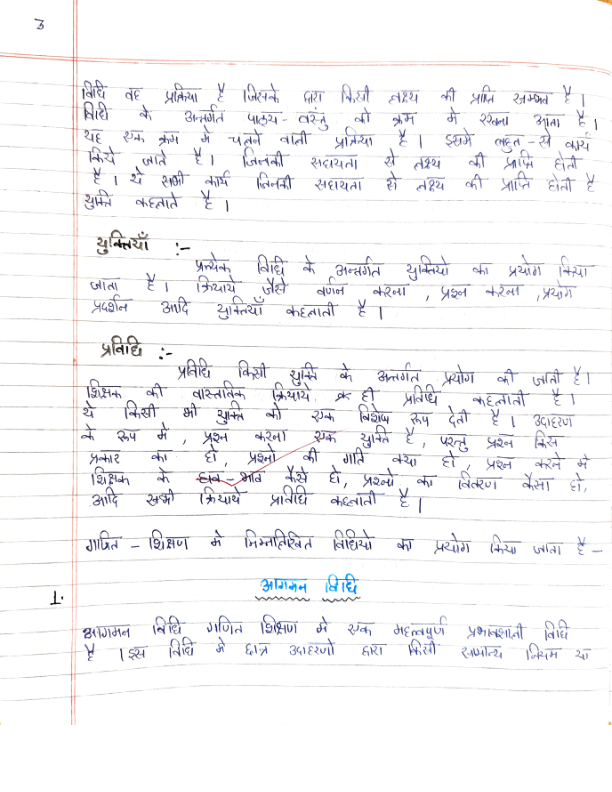 3
विधि वह प्रक्रिया है जिसके द्वारा किसी लक्ष्य की प्राप्ति सम्भव है।
विधि के अन्तर्गत पाठ्य-वस्तु को क्रम में रखना आता है।
यह एक क्रम में चलने वाली प्रक्रिया है। इसमें बहुत-से कार्य
किये जाते है। जिनकी सहायता से लक्ष्य की प्राप्ति होती
है। ये सभी कार्य जिनकी सहायता से लक्ष्य की प्राप्ति होती है
युक्ति कहलाते है।
युक्तियाँ :-
प्रत्येक विधि के अन्तर्गत युक्तियो का प्रयोग किया
जाता है। क्रियाये जैसे वर्णन करना, प्रश्न करना, प्रयोग
प्रदर्शन आदि युक्तियाँ कहलाती है।
प्रविधि :-
प्रविधि किसी युक्ति के अन्तर्गत प्रयोग की जाती है।
शिक्षक की वास्तविक क्रियाये ही प्रविधि कहलाती है।
ये किसी भी युक्ति को एक विशेष रूप देती है। उदाहरण
के रूप मे, प्रश्न करना एक युक्ति है, परन्तु प्रश्न किस
प्रकार का हो, प्रश्नो की गति क्या हो, प्रश्न करने मे
शिक्षक के हाव-भाव कैसे हो, प्रश्नो का वितरण कैसा हो,
आदि सभी क्रियाये प्राविधि कहलाती है।
गणित - शिक्षण मे निम्नलिखित विधियो का प्रयोग किया जाता है -
आगमन विधि
1.
आगमन विधि गणित शिक्षण मे एक महत्वपूर्ण प्रभावशाली विधि
है। इस विधि मे छात्र उदाहरणो द्वारा किसी सामान्य नियम या